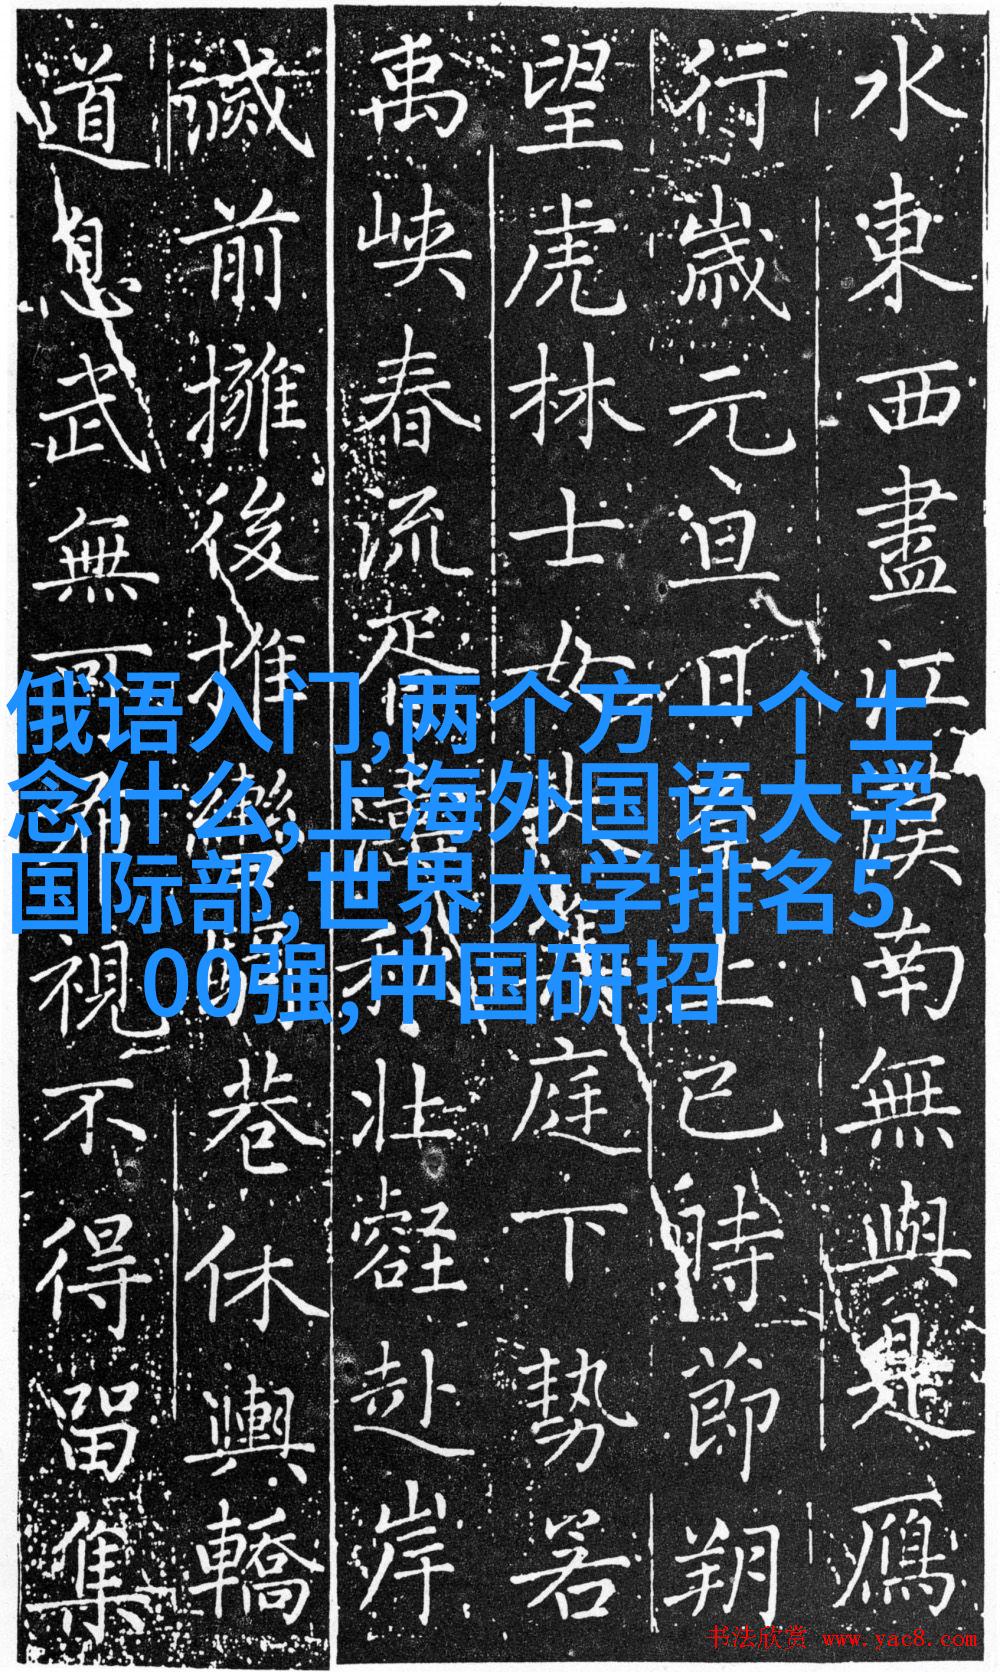 俄语入门,两个方一个土
念什么,上海外国语大学
国际部,世界大学排名5
00强,中国研招
水東西盡江漢南無與是鴈
行歲元旦日上巳時節朔
望虎林士女庭下勢若
禹峽春流胥濤秋壯壑赴岸
滅前擁後推巷休輿轎
道息武無可視不得留集
书法欣赏 www.yac8.com